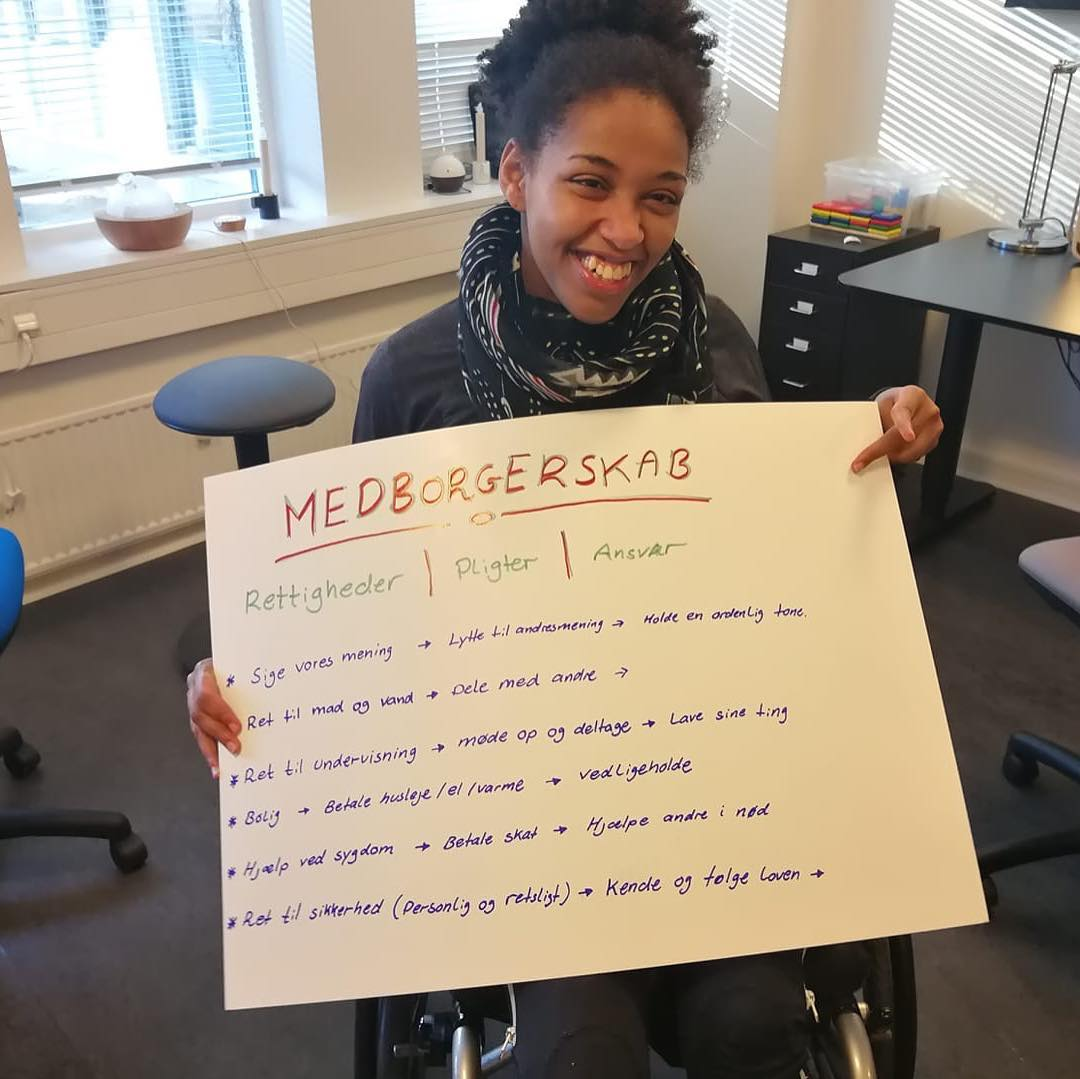 MEDBORGERSKAB
Rettigheder | Pligter | Ansvar
* Sige vores mening → Lytte til andresmening → Holde en ordenlig tone.
Ret til mad og vand → Dele med andre →
* Ret til undervisning → møde op og deltage → Lave sine ting
* Bolig → Betale husleje/el/varme → vedligeholde
* Hjælp ved sygdom → Betale skat → Hjælpe andre i nød
* Ret til sikkerhed (Personlig og retsligt) → Kende og følge Loven →